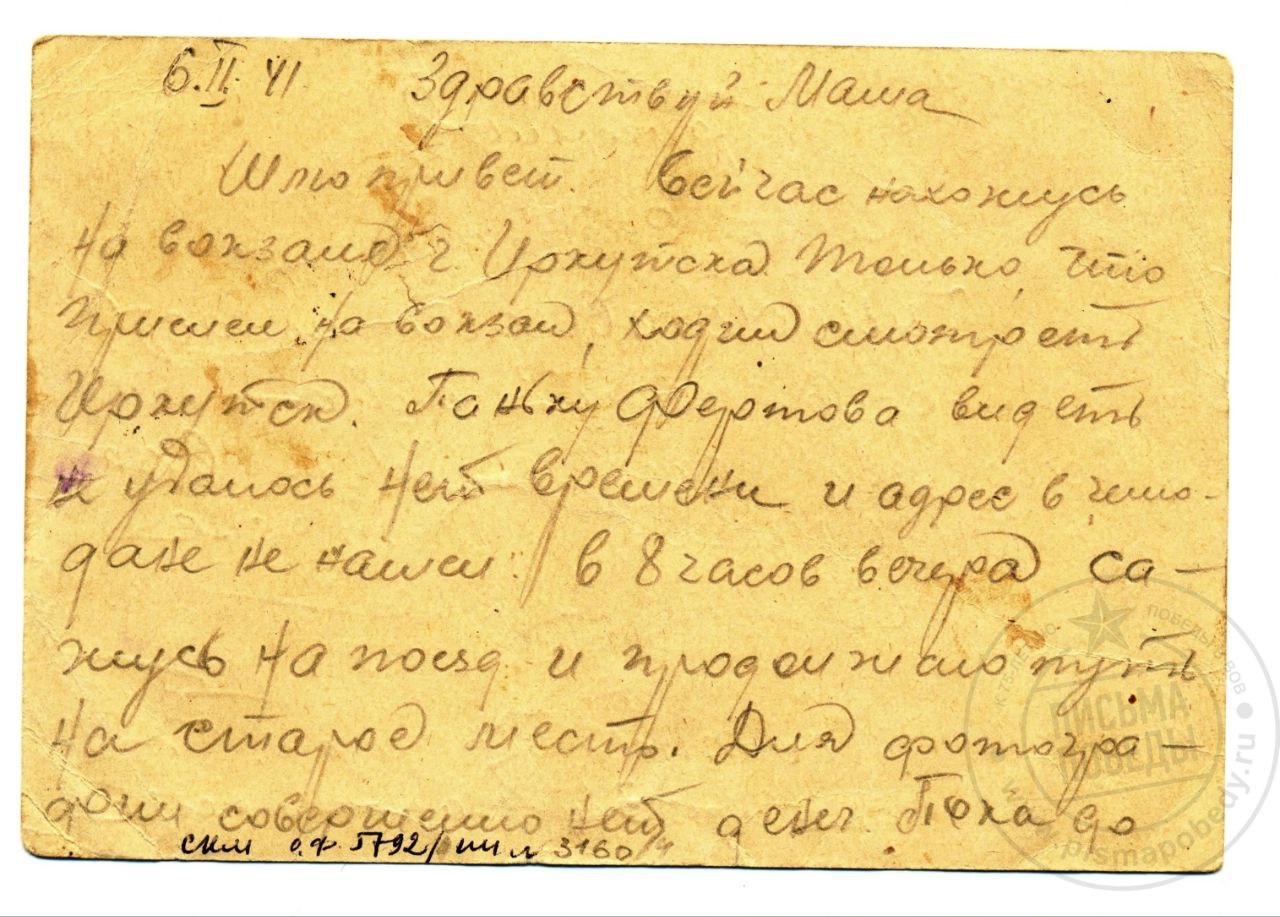 6.II.41 Здравствуй Маша
Шлю привет. Сейчас нахожусь
на вокзале г. Иркутска. Только, что
пришел на вокзал, ходил смотреть
Иркутск. Ганьку Фертова видеть
не удалось нет времени и адрес в чемо-
дане не нашел. в 8 часов вечера са-
жусь на поезд и продолжаю путь
на старое место. Для фотогра-
фии совершенно нет денег. Пока до
СКМ оф 5792/ 3160
ПИСЬМА
ПОБЕДЫ
www.pismapobedy.ru